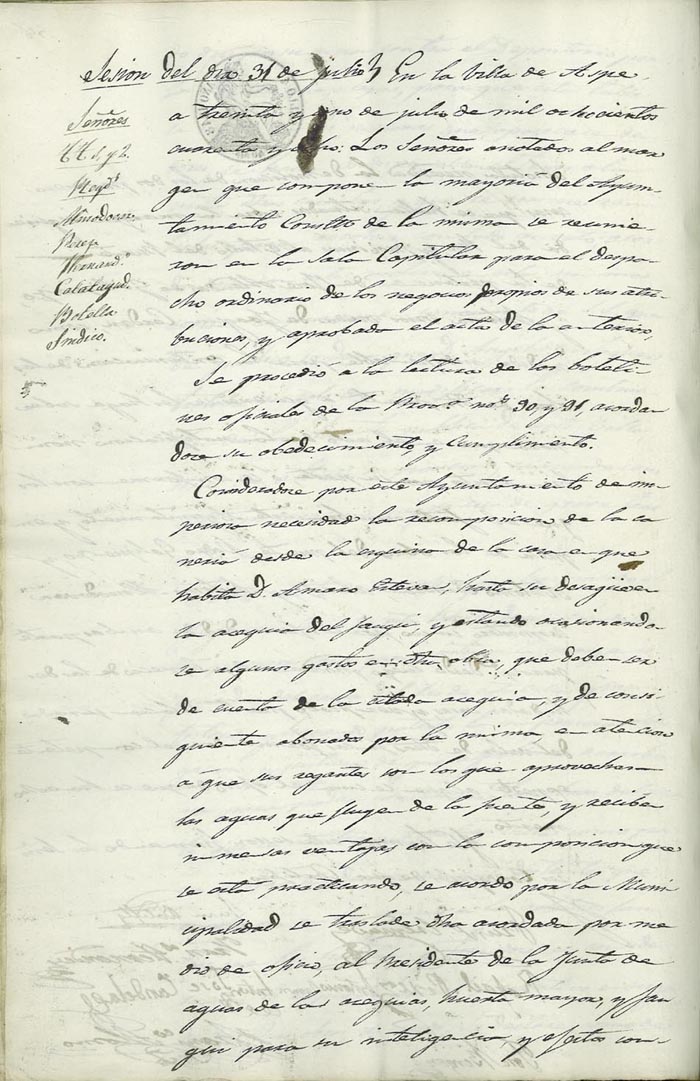 Sesion del dia 31 de julio En la Villa de Aspe,
a treinta y uno de julio de mil ochocientos
cuarenta y ocho: Los Señores anotados al mar
gen que compone la mayoria del Ayun-
tamiento Constl. de la misma se reunie-
ron en la Sala Capitular para el despa-
cho ordinario de los negocios propios de sus atri-
buciones, y aprobada el acta de la anterior,
Se procedió a la lectura de los boleti-
nes oficiales de la Prov.ª nos. 90 y 91, acorda
dose su obedecimiento, y cumplimiento.
Considerandose por este Ayuntamiento de im
periosa necesidad la recomposicion de la ca
ñeria desde la esquina de la casa en que
habita D. Amaro Esteva, hasta su desagüe en
la acequia del Fauqui, y estando ocasionando-
se algunos gastos en obra, que deben ser
de cuenta de la citada acequia, y de consi-
guiente abonados por la misma en atencion
á que sus regantes son los que aprovechan
las aguas que fluyen de la fuente, y reciben
inmensas ventajas con la composicion que
se está practicando, se acordo por la Muni
cipalidad se traslade dha acordada por me
dio de oficio, al Presidente de la Junta de
aguas de las acequias, huerta mayor, y Fau
qui para su inteligencia, y efectos con-
Señores
TT. 1.º y 2.º
Regds.
Almodovar.
Perez.
Hernand.z
Calatayud.
Botella
Sindico.